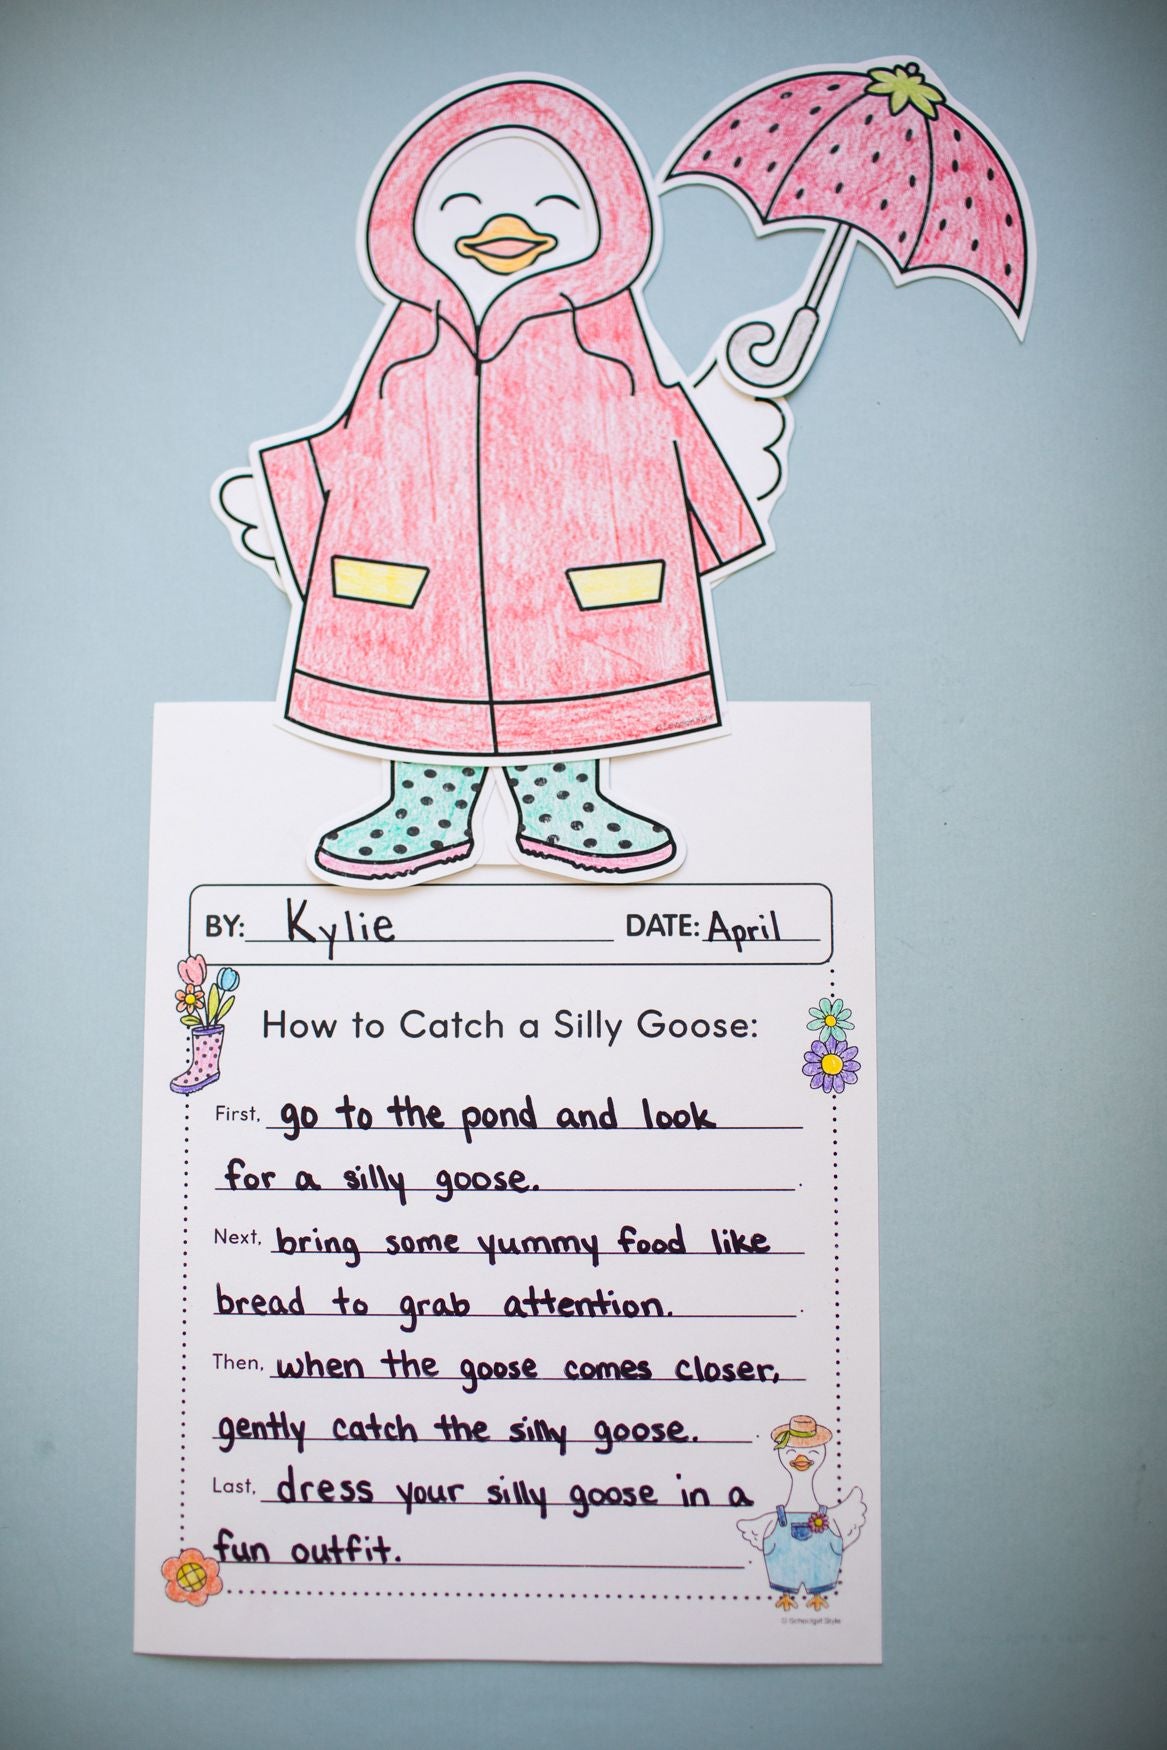 BY: Kylie DATE: April
How to Catch a Silly Goose:
First, go to the pond and look
for a silly goose.
Next, bring some yummy food like
bread to grab attention.
Then, when the goose comes closer,
gently catch the silly goose.
Last, dress your silly goose in a
fun outfit.
© Schoolgirl Style